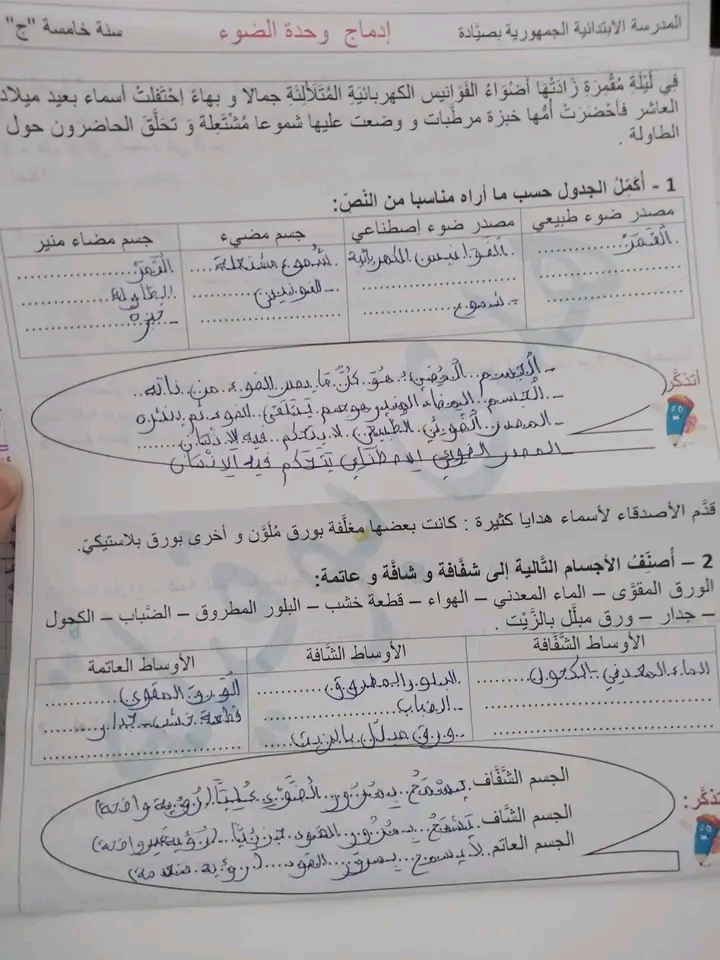 المدرسة الابتدائية الجمهورية بصيّادة إدماج وحدة الضوء سنة خامسة "ج"
فِي لَيْلَةٍ مُقْمِرَةٍ زَادَتْهَا أضْوَاءُ الفَوَانِيسِ الكهربائيّةِ المُتَلَأْلِئَةِ جمالا و بهاءً إحْتَفَلتْ أسماء بعيد ميلادها
العاشر فأحْضَرَتْ أمُّها خبزة مرطّبات و وضعت عليها شموعا مُشْتَعِلة وَ تَحَلَّقَ الحاضرون حول
الطاولة .
1 - أُكَمِّلُ الجدول حسب ما أراه مناسبا من النّصّ:
مصدر ضوء طبيعي مصدر ضوء إصطناعي جسم مضيء جسم مضاء منير
القمر الفوانيس الكهربائية شموع مشتعلة القمر
الفوانيس الطاولة
- شموع - خبزة
أتذكّر
- الجسم المضيء: هو كلّ ما يصدر الضوء من ذاته
- الجسم المضاء المنير هو جسم يتلقى الضوء ثم ينثره
- المصدر الضوئي الطبيعي لا يتحكم فيه الإنسان
- المصدر الضوئي الاصطناعي يتحكم فيه الإنسان
قدّم الأصدقاء لأسماء هدايا كثيرة : كانت بعضها مغلّفة بورق مُلوّن و أخرى بورق بلاستيكيّ.
2 – أصنّفُ الأجسام التّالية إلى شفّافة و شافّة و عاتمة:
الورق المقوّى – الماء المعدني – الهواء – قطعة خشب – البلور المطروق – الضّباب – الكحول
– جدار – ورق مبلّل بالزّيْت .
الأوساط الشّفّافة الأوساط الشّافة الأوساط العاتمة
الماء المعدني - الكحول البلور المطروق الورق المقوى
- الضباب قطعة خشب - جدار
ورق مبلّل بالزيت
تذكّر:
الجسم الشّفّاف يسمح بمرور الضوء كليّا (رؤية واضحة)
الجسم الشّاف يسمح بمرور الضوء جزئيّا (رؤية غير واضحة)
الجسم العاتم لا يسمح بمرور الضوء (رؤية منعدمة)